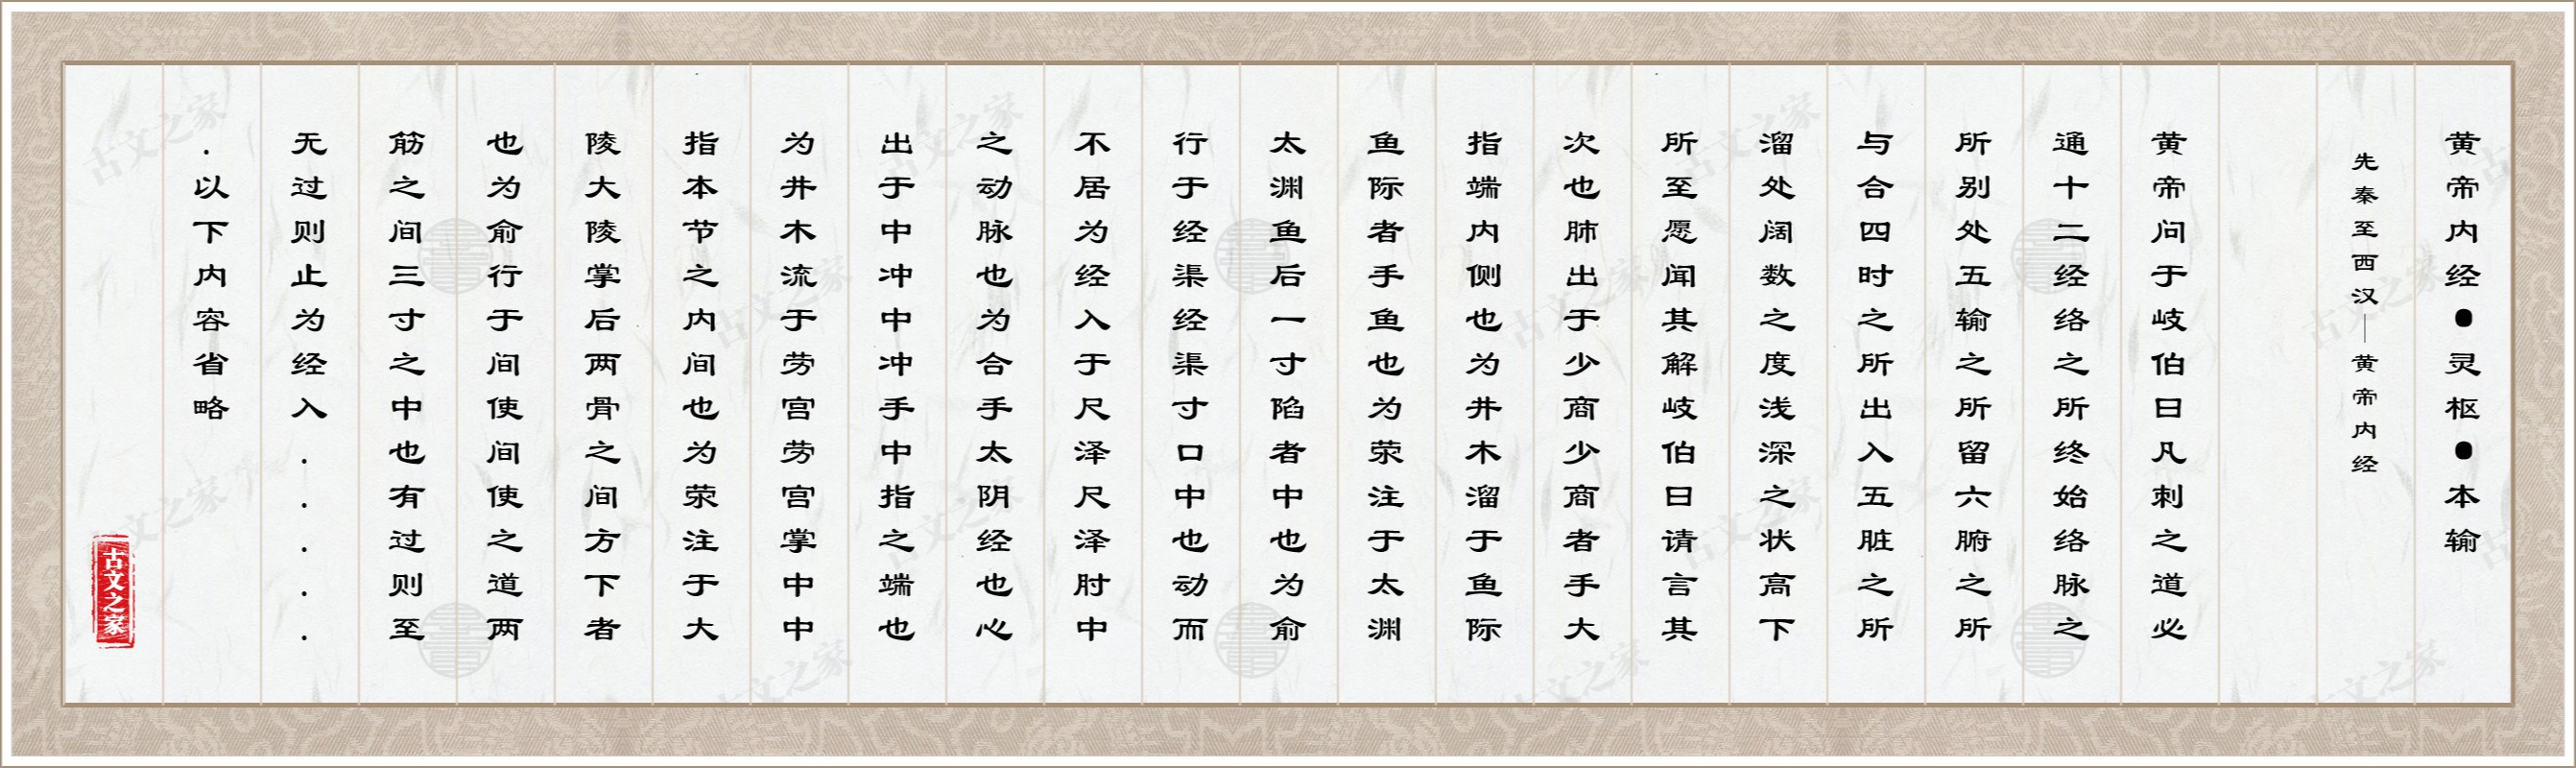 黄帝内经●灵枢●本输
先秦至西汉—黄帝内经
黄帝问于岐伯曰凡刺之道必
通十二经络之所终始络脉之
所别处五输之所留六腑之所
与合四时之所出入五脏之所
溜处阔数之度浅深之状高下
所至愿闻其解岐伯曰请言其
次也肺出于少商少商者手大
指端内侧也为井木溜于鱼际
鱼际者手鱼也为荥注于太渊
太渊鱼后一寸陷者中也为俞
行于经渠经渠寸口中也动而
不居为经入于尺泽尺泽肘中
之动脉也为合手太阴经也心
出于中冲中冲手中指之端也
为井木流于劳宫劳宫掌中中
指本节之内间也为荥注于大
陵大陵掌后两骨之间方下者
也为俞行于间使间使之道两
筋之间三寸之中也有过则至
无过则止为经入.....
.以下内容省略
古文之家